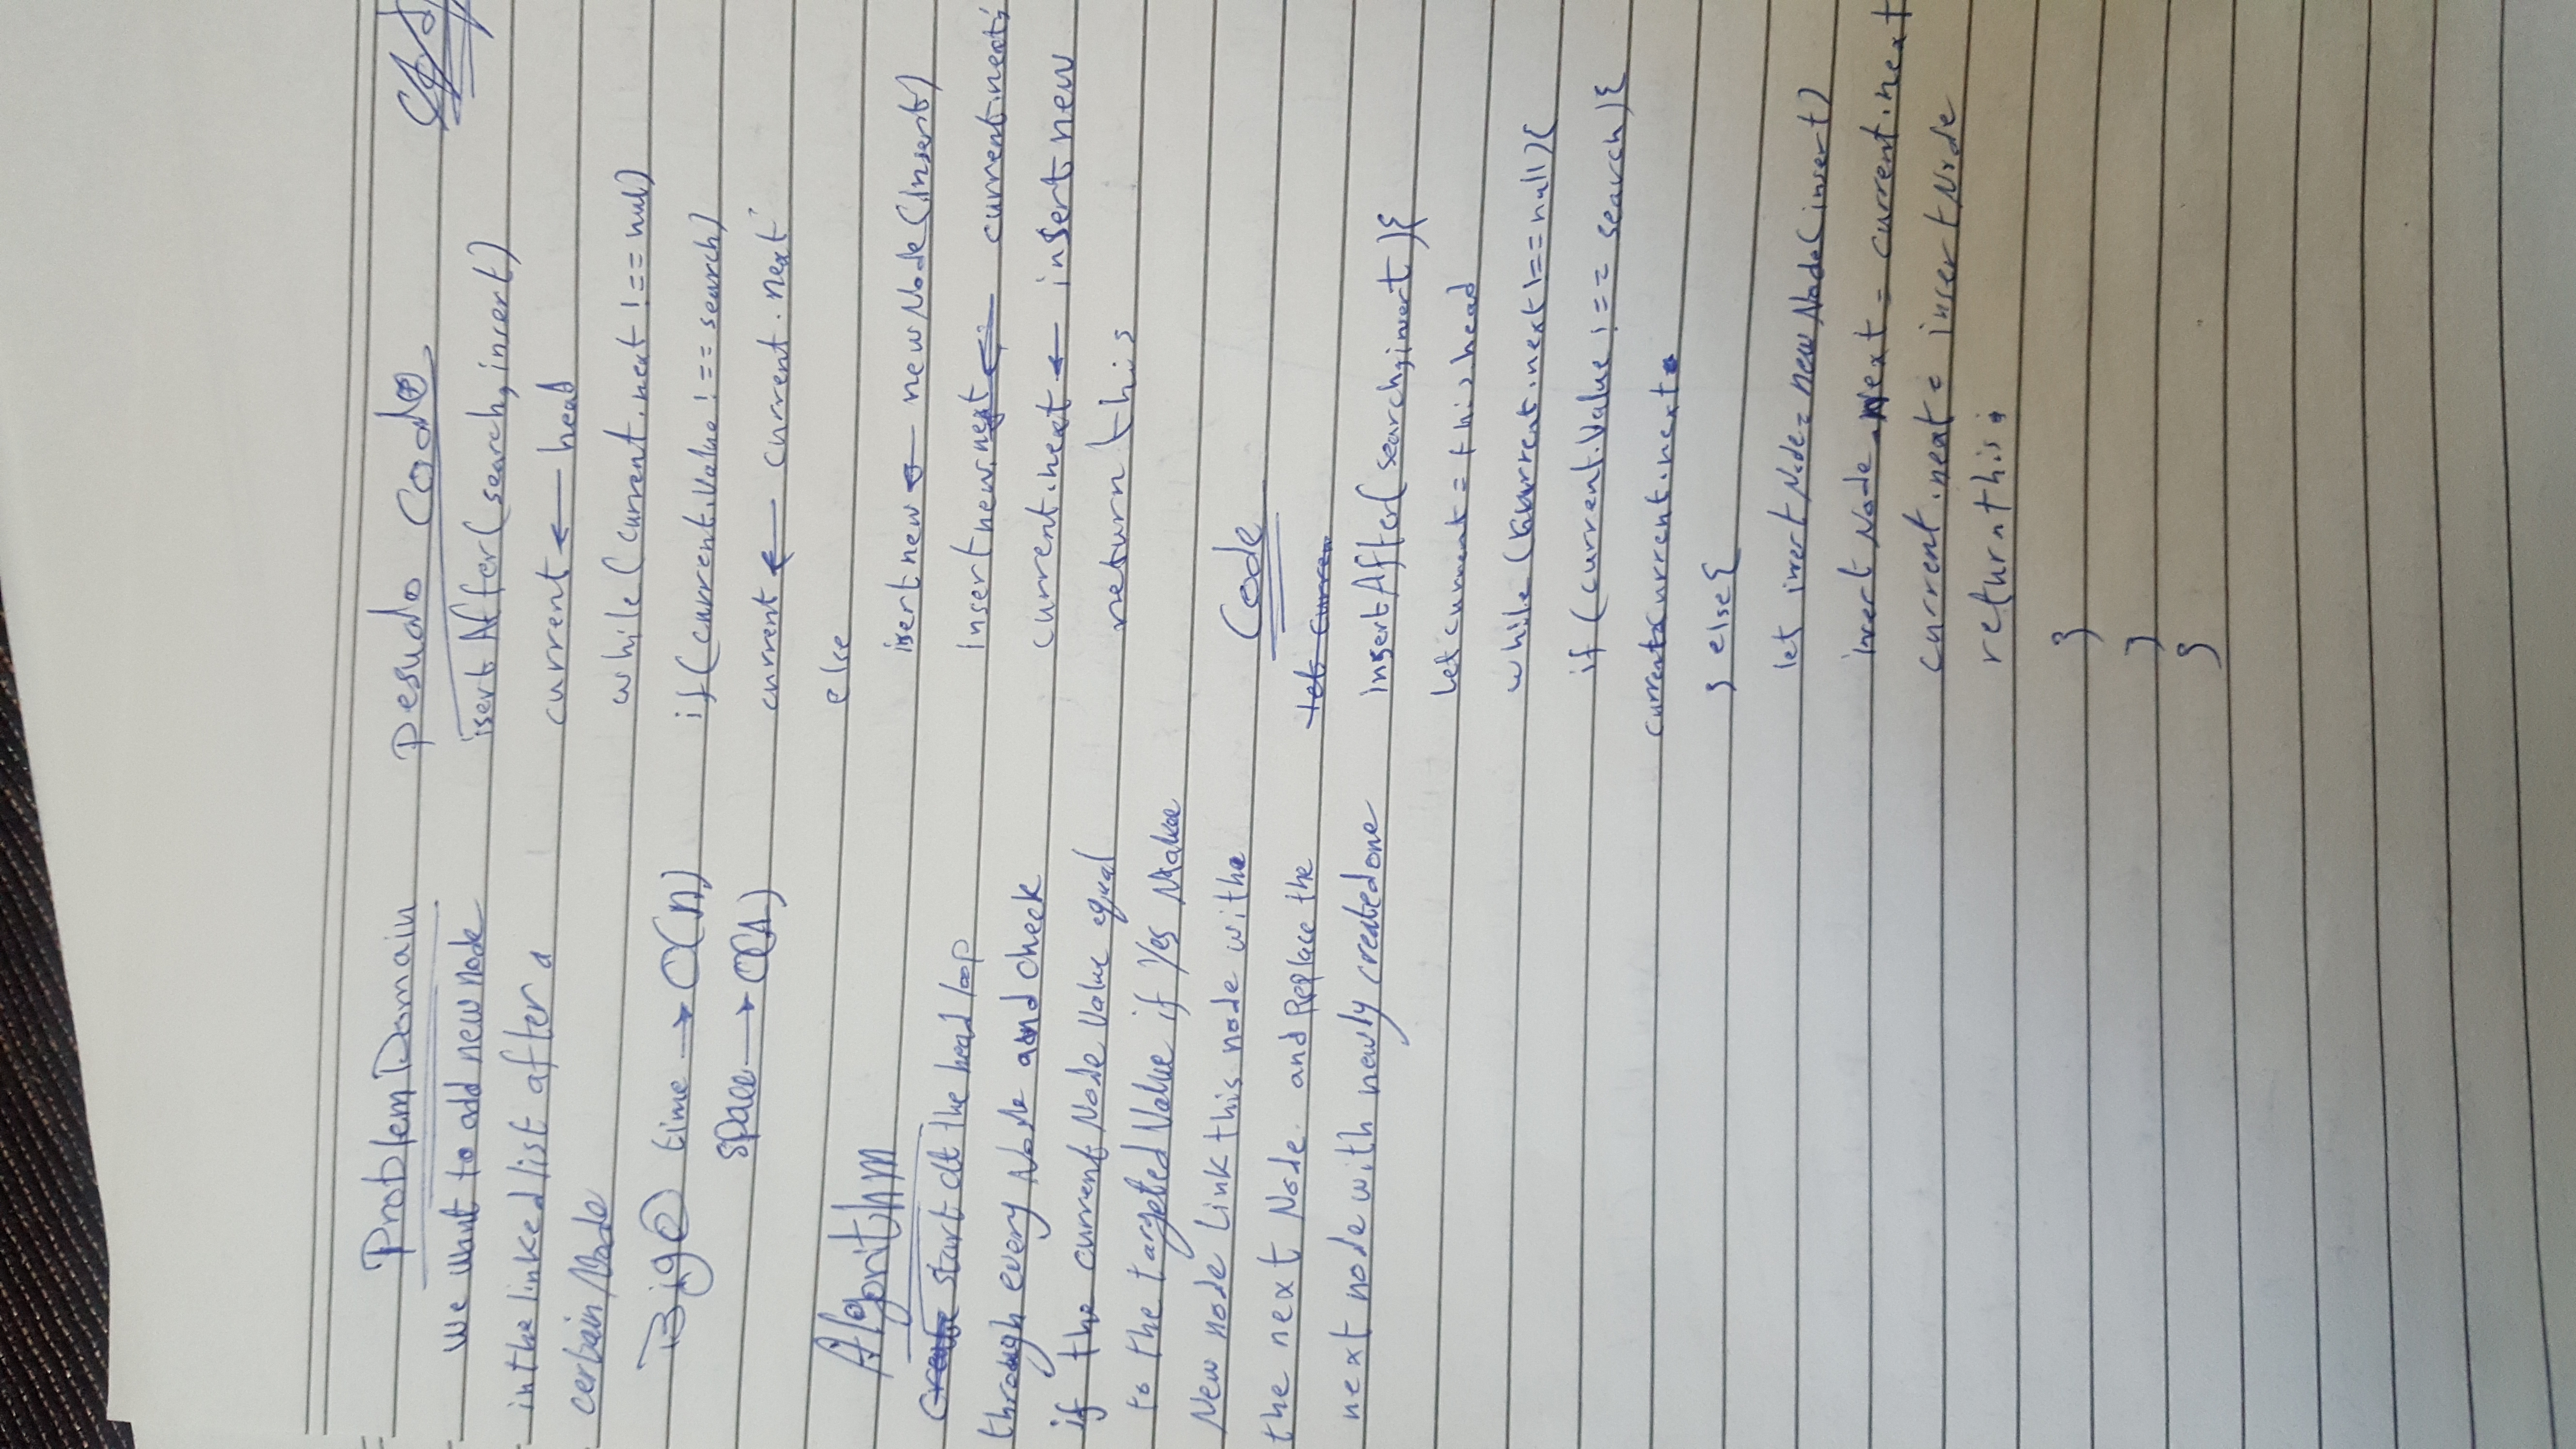 Problem Domain
we want to add new node
in the linked list after a
certain Node
Big O time → O(n)
space → O(1)
Algorithm
start at the head loop
through every Node and check
if the current Node Value equal
to the targeted Value if Yes Make
New node Link this node with
the next Node. and Replace the
next node with newly created one
pesudo Code
isertAfter(search, insert)
current ← head
while (current.next !== null)
if (current.Value !== search)
current ← current.next
else
isertnew ← new Node (insert)
insertnew.next ← current.next
current.next ← insert new
return this
Code
let curren
insertAfter(search, insert){
let current = this.head
while (current.next !== null){
if (current.Value !== search){
current=current.next
} else {
let insertNode = new Node(insert)
insertNode.Next = current.next
current.next = insertNode
return this;
}
}
}